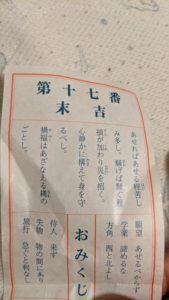 第十七番
末吉
あせればあせる程苦し
み多し。騒げば騒ぐ程
損が加わり災を招く。
心静かに構えて身を守
るべし。
禍福はあざなえる縄の
ごとし。
おみくじ
願望 あせるべからず
学業 諦めるな
方角 西と北よし
待人 来ず
失物 物の間にあり
旅行 急ぐと利なし